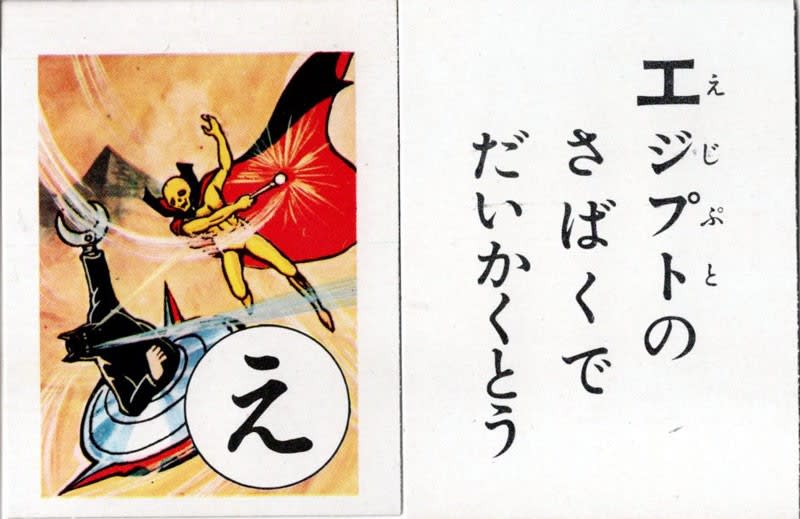 え
エジプトの
えじぷと
さばくで
だいかくとう